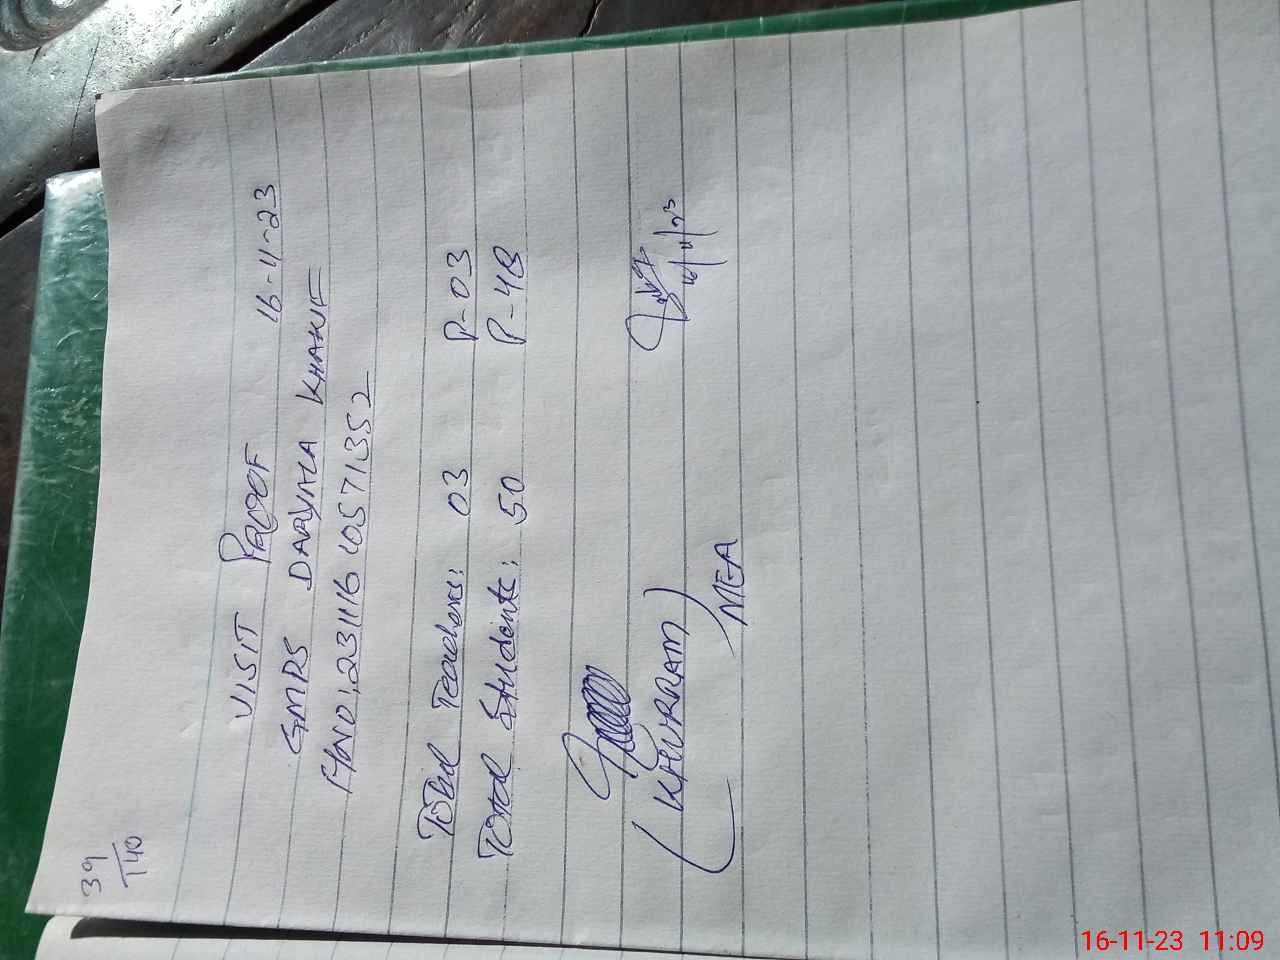 39
140
VISIT PROOF 16-11-23
GMPS DARYALA KHAKI
M NO: 231116 10571352
Total Teachers: 03 P-03
Total Students: 50 P-48
16/11/23
(KHURRAM)
MEA
16-11-23 11:09